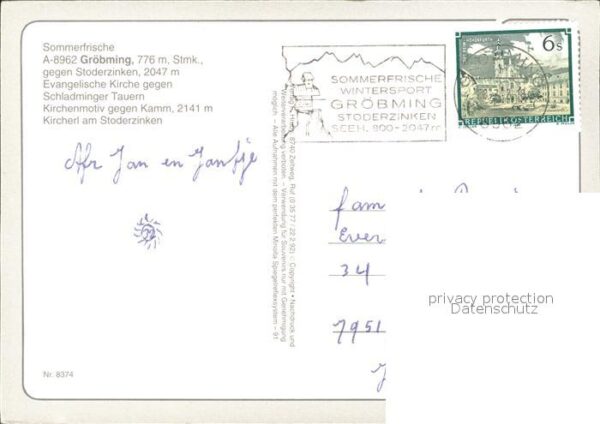 Sommerfrische
A-8962 Gröbming, 776 m, Stmk.,
gegen Stoderzinken, 2047 m
Evangelische Kirche gegen
Schladminger Tauern
Kirchenmotiv gegen Kamm, 2141 m
Kircherl am Stoderzinken
Afz Jan en Jantje
Nr. 8374
8740 Zeltweg, Ruf (0 35 77 / 22 2 92) © Copyright • Nachdruck und
Weiterverarbeitung verboten – Verwendung für Souvenirs nur mit Genehmigung
möglich – Alle Aufnahmen mit dem perfekten Minolta Spiegelreflexsystem – 91
SOMMERFRISCHE
WINTERSPORT
GRÖBMING
STODERZINKEN
SEEH. 800-2047m
6s
REPUBLIK ÖSTERREICH
fam
Ever
34
7951
privacy protection
Datenschutz